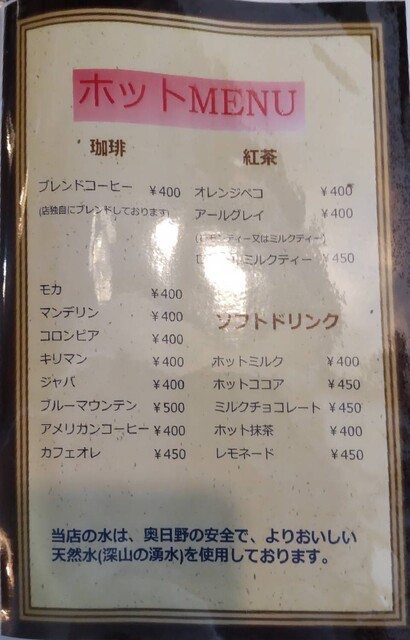 ホットMENU
珈琲
ブレンドコーヒー ¥400
(店独自にブレンドしております)
モカ ¥400
マンデリン ¥400
コロンビア ¥400
キリマン ¥400
ジャバ ¥400
ブルーマウンテン ¥500
アメリカンコーヒー ¥400
カフェオレ ¥450
紅茶
オレンジペコ ¥400
アールグレイ ¥400
ティー又はミルクティー)
ミルクティー ¥450
ソフトドリンク
ホットミルク ¥400
ホットココア ¥450
ミルクチョコレート ¥450
ホット抹茶 ¥400
レモネード ¥450
当店の水は、奥日野の安全で、よりおいしい
天然水(深山の湧水)を使用しております。